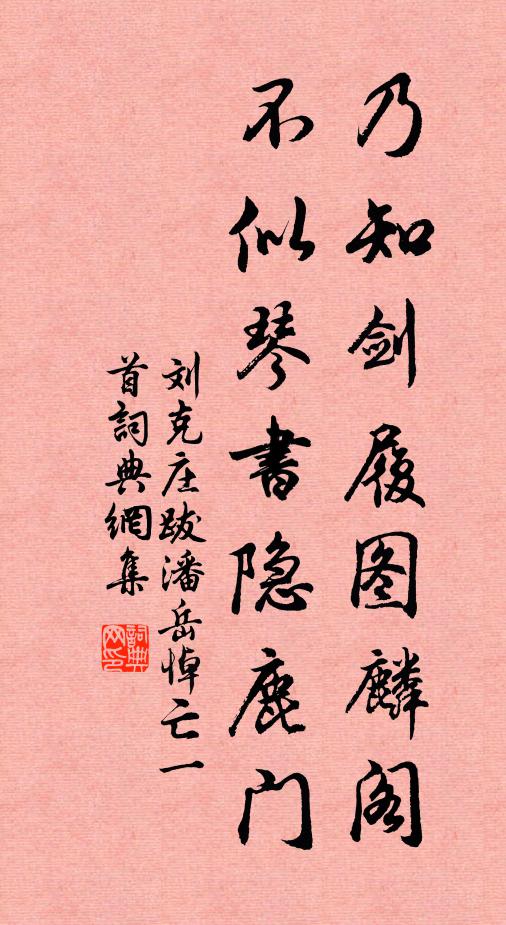 乃知剑履图麟阁
不似琴书隐鹿门
刘克庄跋潘岳悼亡一
首词典網集
詞典
网印